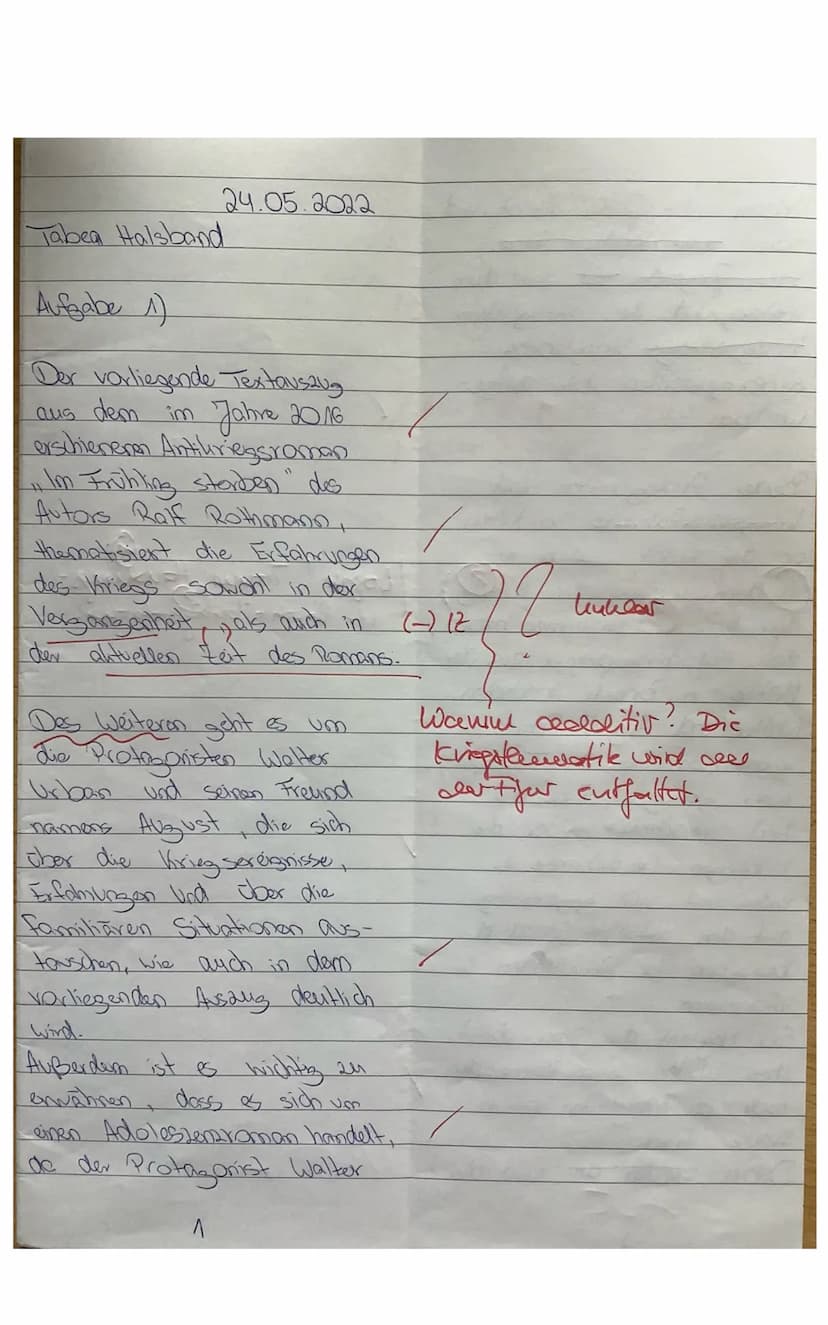 24.05.2022
Tabea Halsband
Aufgabe 1)
Der vorliegende Textauszug
aus dem im Jahre 2016
erschienenen Antikriegsroman
„Im Frühling sterben" des
Autors Ralf Rothmann,
thematisiert die Erfahrungen
des Kriegs sowohl in der
Vergangenheit, als auch in
der aktuellen Zeit des Romans.
(-) IZ
?
unklar
Des Weiteren geht es um
die Protagonisten Walter
Urban und seinen Freund
namens August, die sich
über die Kriegsereignisse,
Erfahrungen und über die
familiären Situationen aus-
tauschen, wie auch in dem
vorliegenden Auszug deutlich
wird.
Außerdem ist es wichtig zu
erwähnen, dass es sich um
einen Adoleszenzroman handelt,
da der Protagonist Walter
Warum additiv? Die
Kriegsthematik wird an
der Figur entfaltet.
1